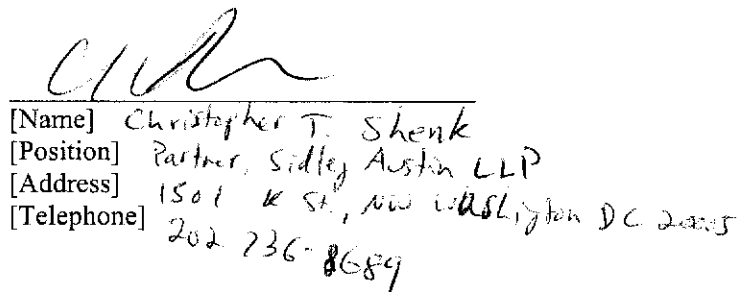 [Name] Christopher T. Shenk
[Position] Partner, Sidley Austin LLP
[Address] 1501 K St., NW Washington DC 20005
[Telephone] 202 736-8689